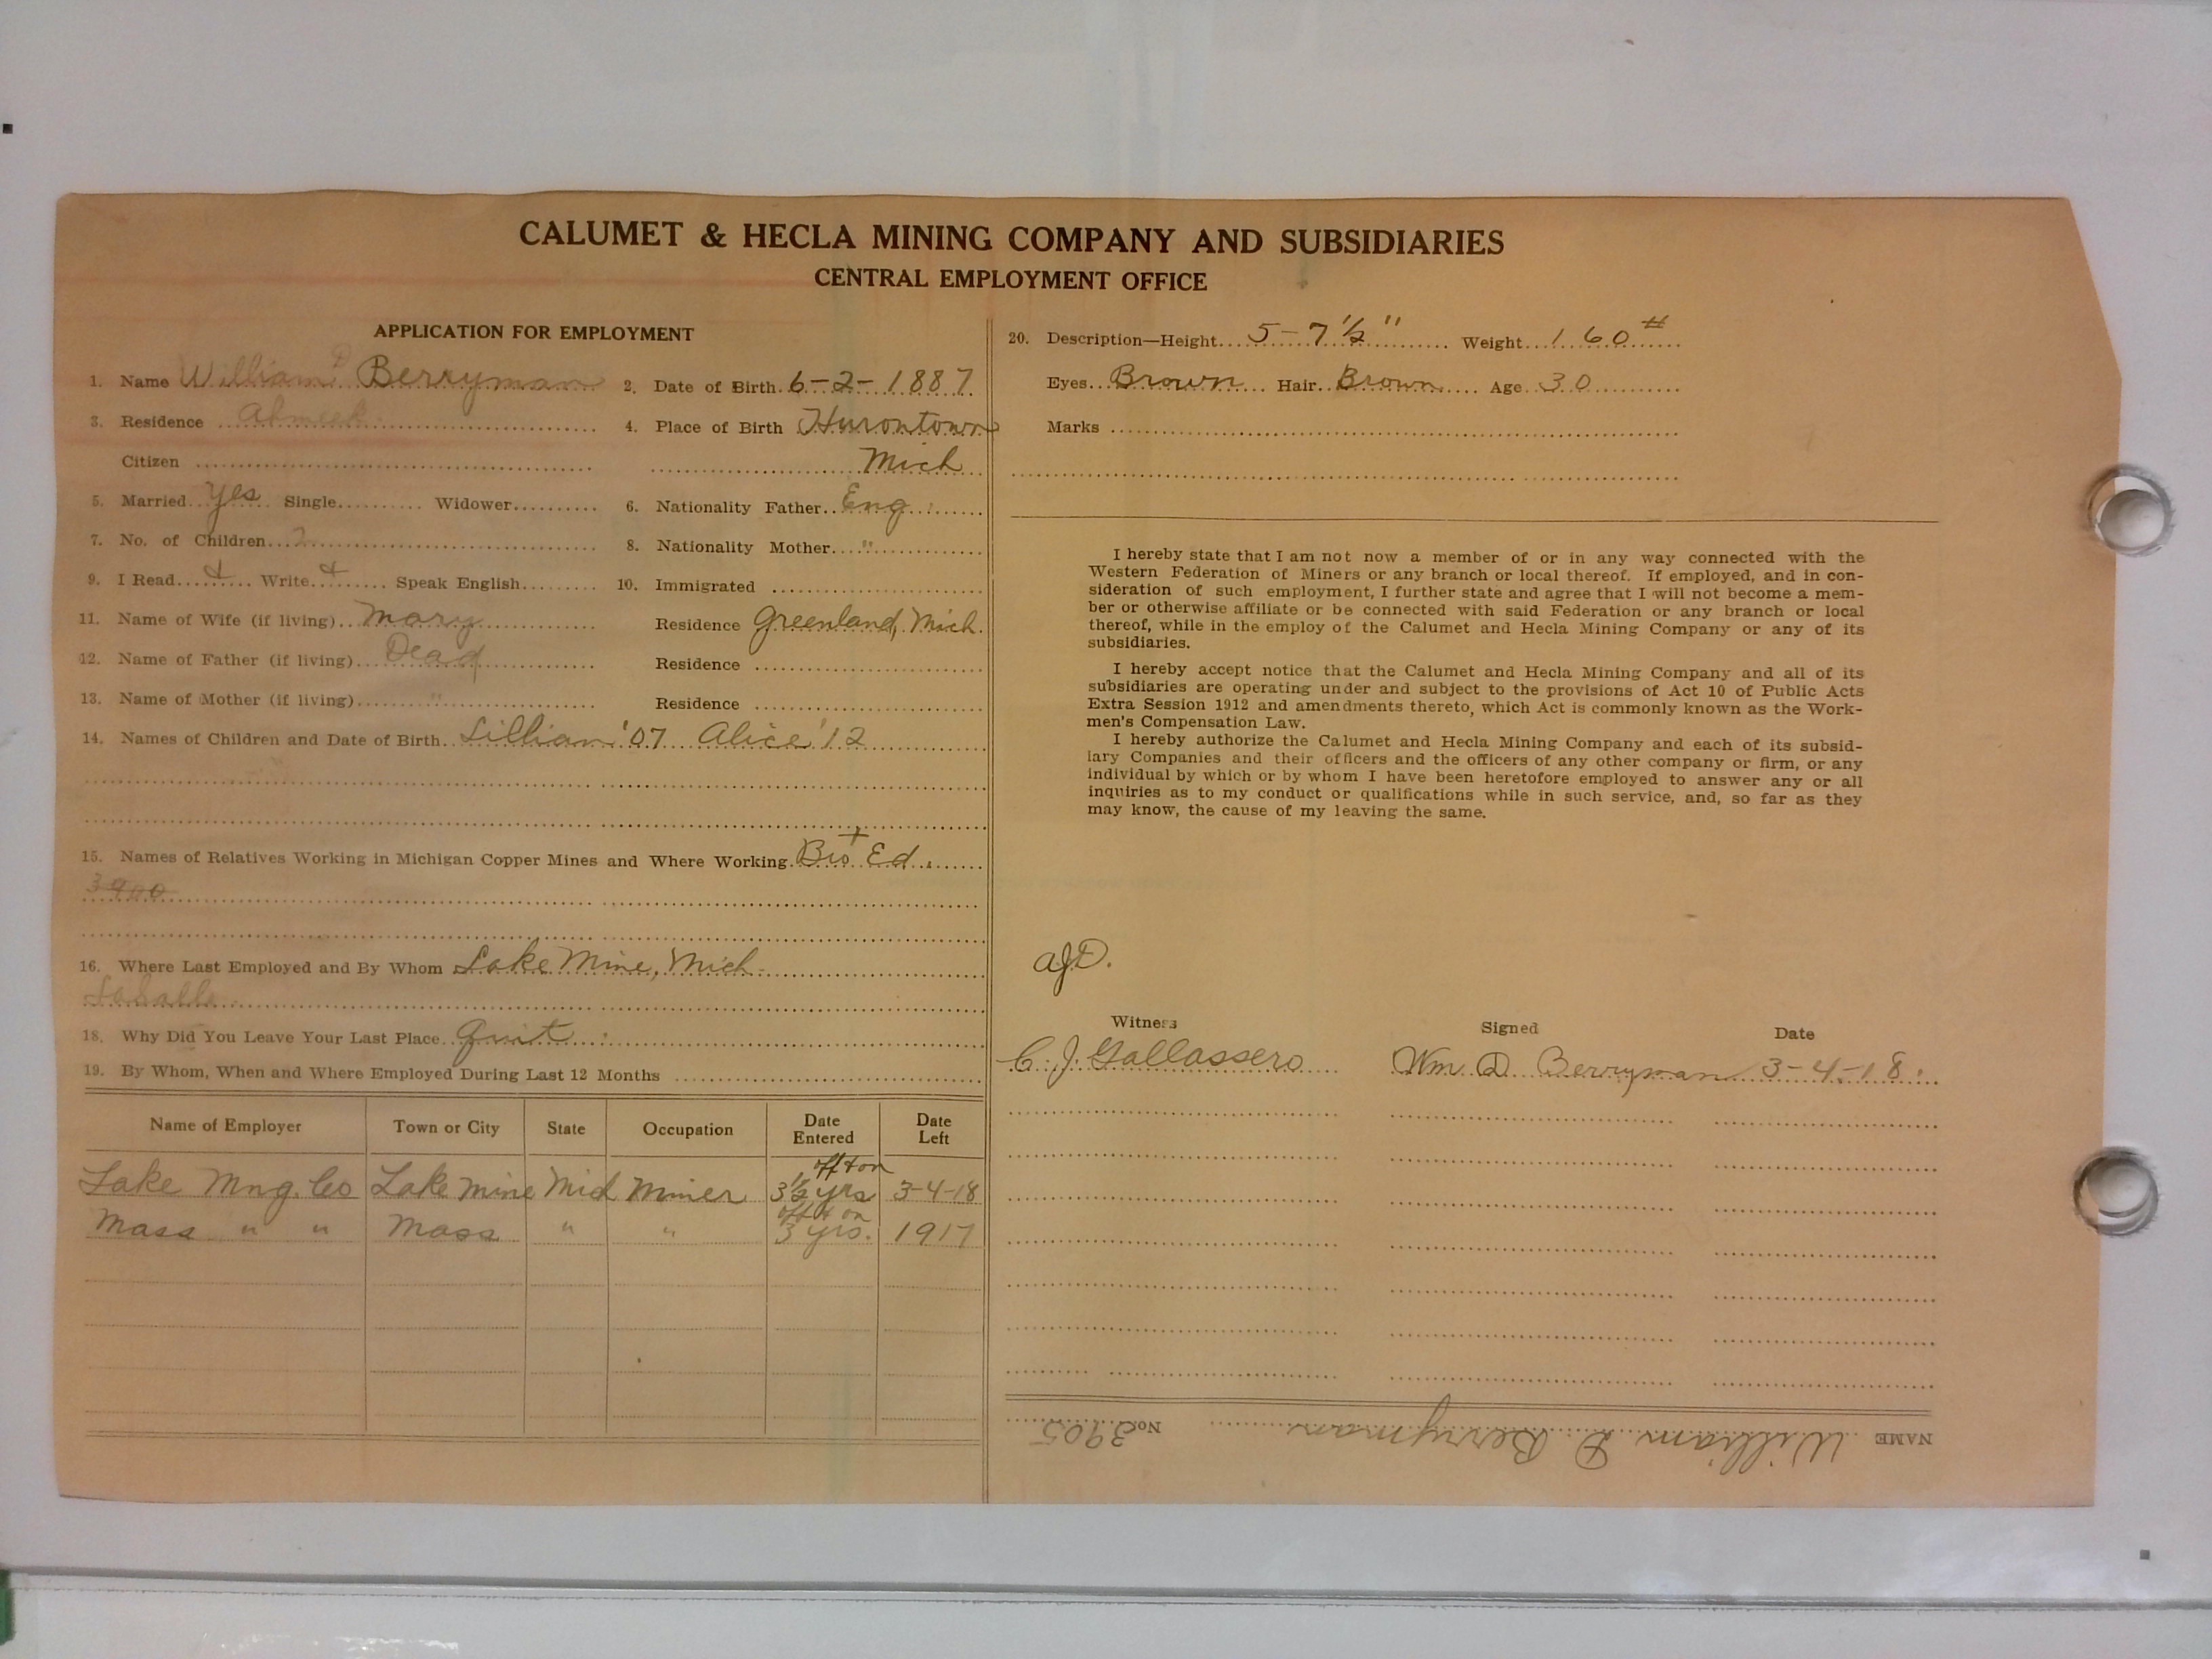 CALUMET & HECLA MINING COMPANY AND SUBSIDIARIES
CENTRAL EMPLOYMENT OFFICE
APPLICATION FOR EMPLOYMENT
1. Name William D Berryman 2. Date of Birth 6-2-1887
3. Residence Ahmeek 4. Place of Birth Hurontown
Citizen Mich
5. Married Yes Single Widower 6. Nationality Father Eng
7. No. of Children 2 8. Nationality Mother "
9. I Read Write Speak English 10. Immigrated
11. Name of Wife (if living) Mary Residence Greenland, Mich.
12. Name of Father (if living) Dead Residence
13. Name of Mother (if living) " Residence
14. Names of Children and Date of Birth Lillian '07 Alice '12
15. Names of Relatives Working in Michigan Copper Mines and Where Working Bro Ed.
3900
16. Where Last Employed and By Whom Lake Mine, Mich.
LaSalle
18. Why Did You Leave Your Last Place quit
19. By Whom, When and Where Employed During Last 12 Months
Name of Employer Town or City State Occupation Date Entered Date Left
Lake Mng. Co Lake Mine Mich Miner off & on 3½ yrs 3-4-18
Mass " " Mass " " off & on 3 yrs. 1917
20. Description—Height 5-7½" Weight 160#
Eyes Brown Hair Brown Age 30
Marks
I hereby state that I am not now a member of or in any way connected with the
Western Federation of Miners or any branch or local thereof. If employed, and in con-
sideration of such employment, I further state and agree that I will not become a mem-
ber or otherwise affiliate or be connected with said Federation or any branch or local
thereof, while in the employ of the Calumet and Hecla Mining Company or any of its
subsidiaries.
I hereby accept notice that the Calumet and Hecla Mining Company and all of its
subsidiaries are operating under and subject to the provisions of Act 10 of Public Acts
Extra Session 1912 and amendments thereto, which Act is commonly known as the Work-
men's Compensation Law.
I hereby authorize the Calumet and Hecla Mining Company and each of its subsid-
iary Companies and their officers and the officers of any other company or firm, or any
individual by which or by whom I have been heretofore employed to answer any or all
inquiries as to my conduct or qualifications while in such service, and, so far as they
may know, the cause of my leaving the same.
AJD.
Witness Signed Date
C. J. Gallassero Wm D Berryman 3-4-18.
NAME William D Berryman No. 3905